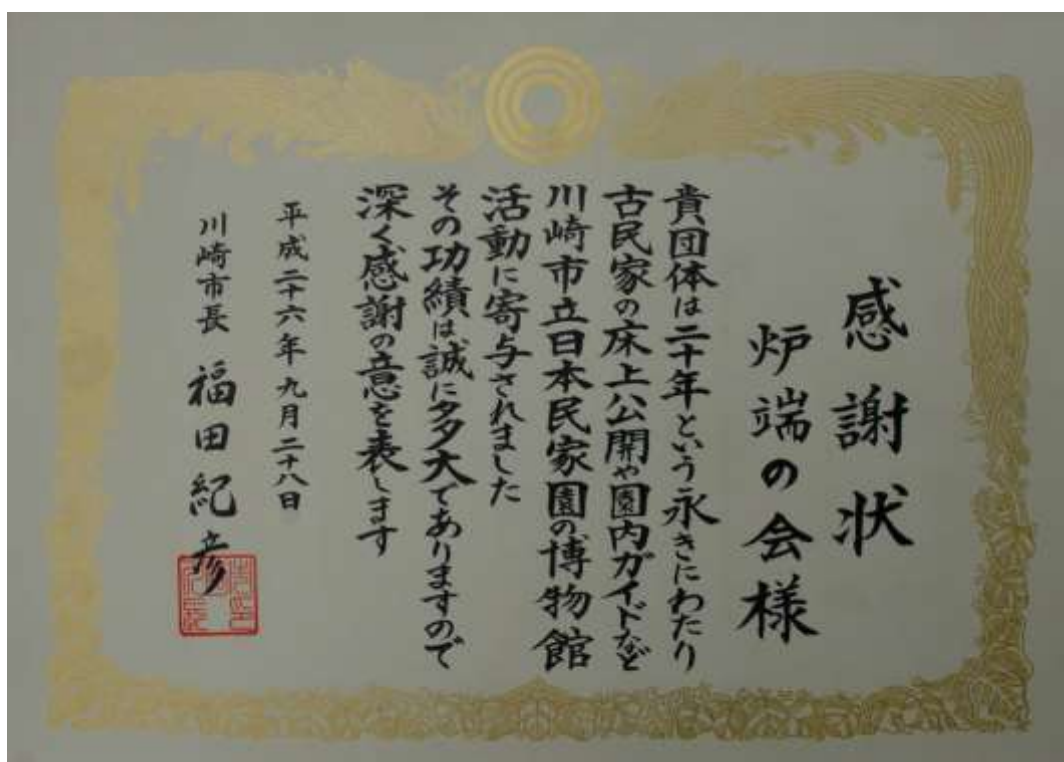 感謝状
炉端の会様
貴団体は二十年という永きにわたり
古民家の床上公開や園内ガイドなど
川崎市立日本民家園の博物館
活動に寄与されました
その功績は誠に多大でありますので
深く感謝の意を表します
平成二十六年九月二十八日
川崎市長 福田紀彦